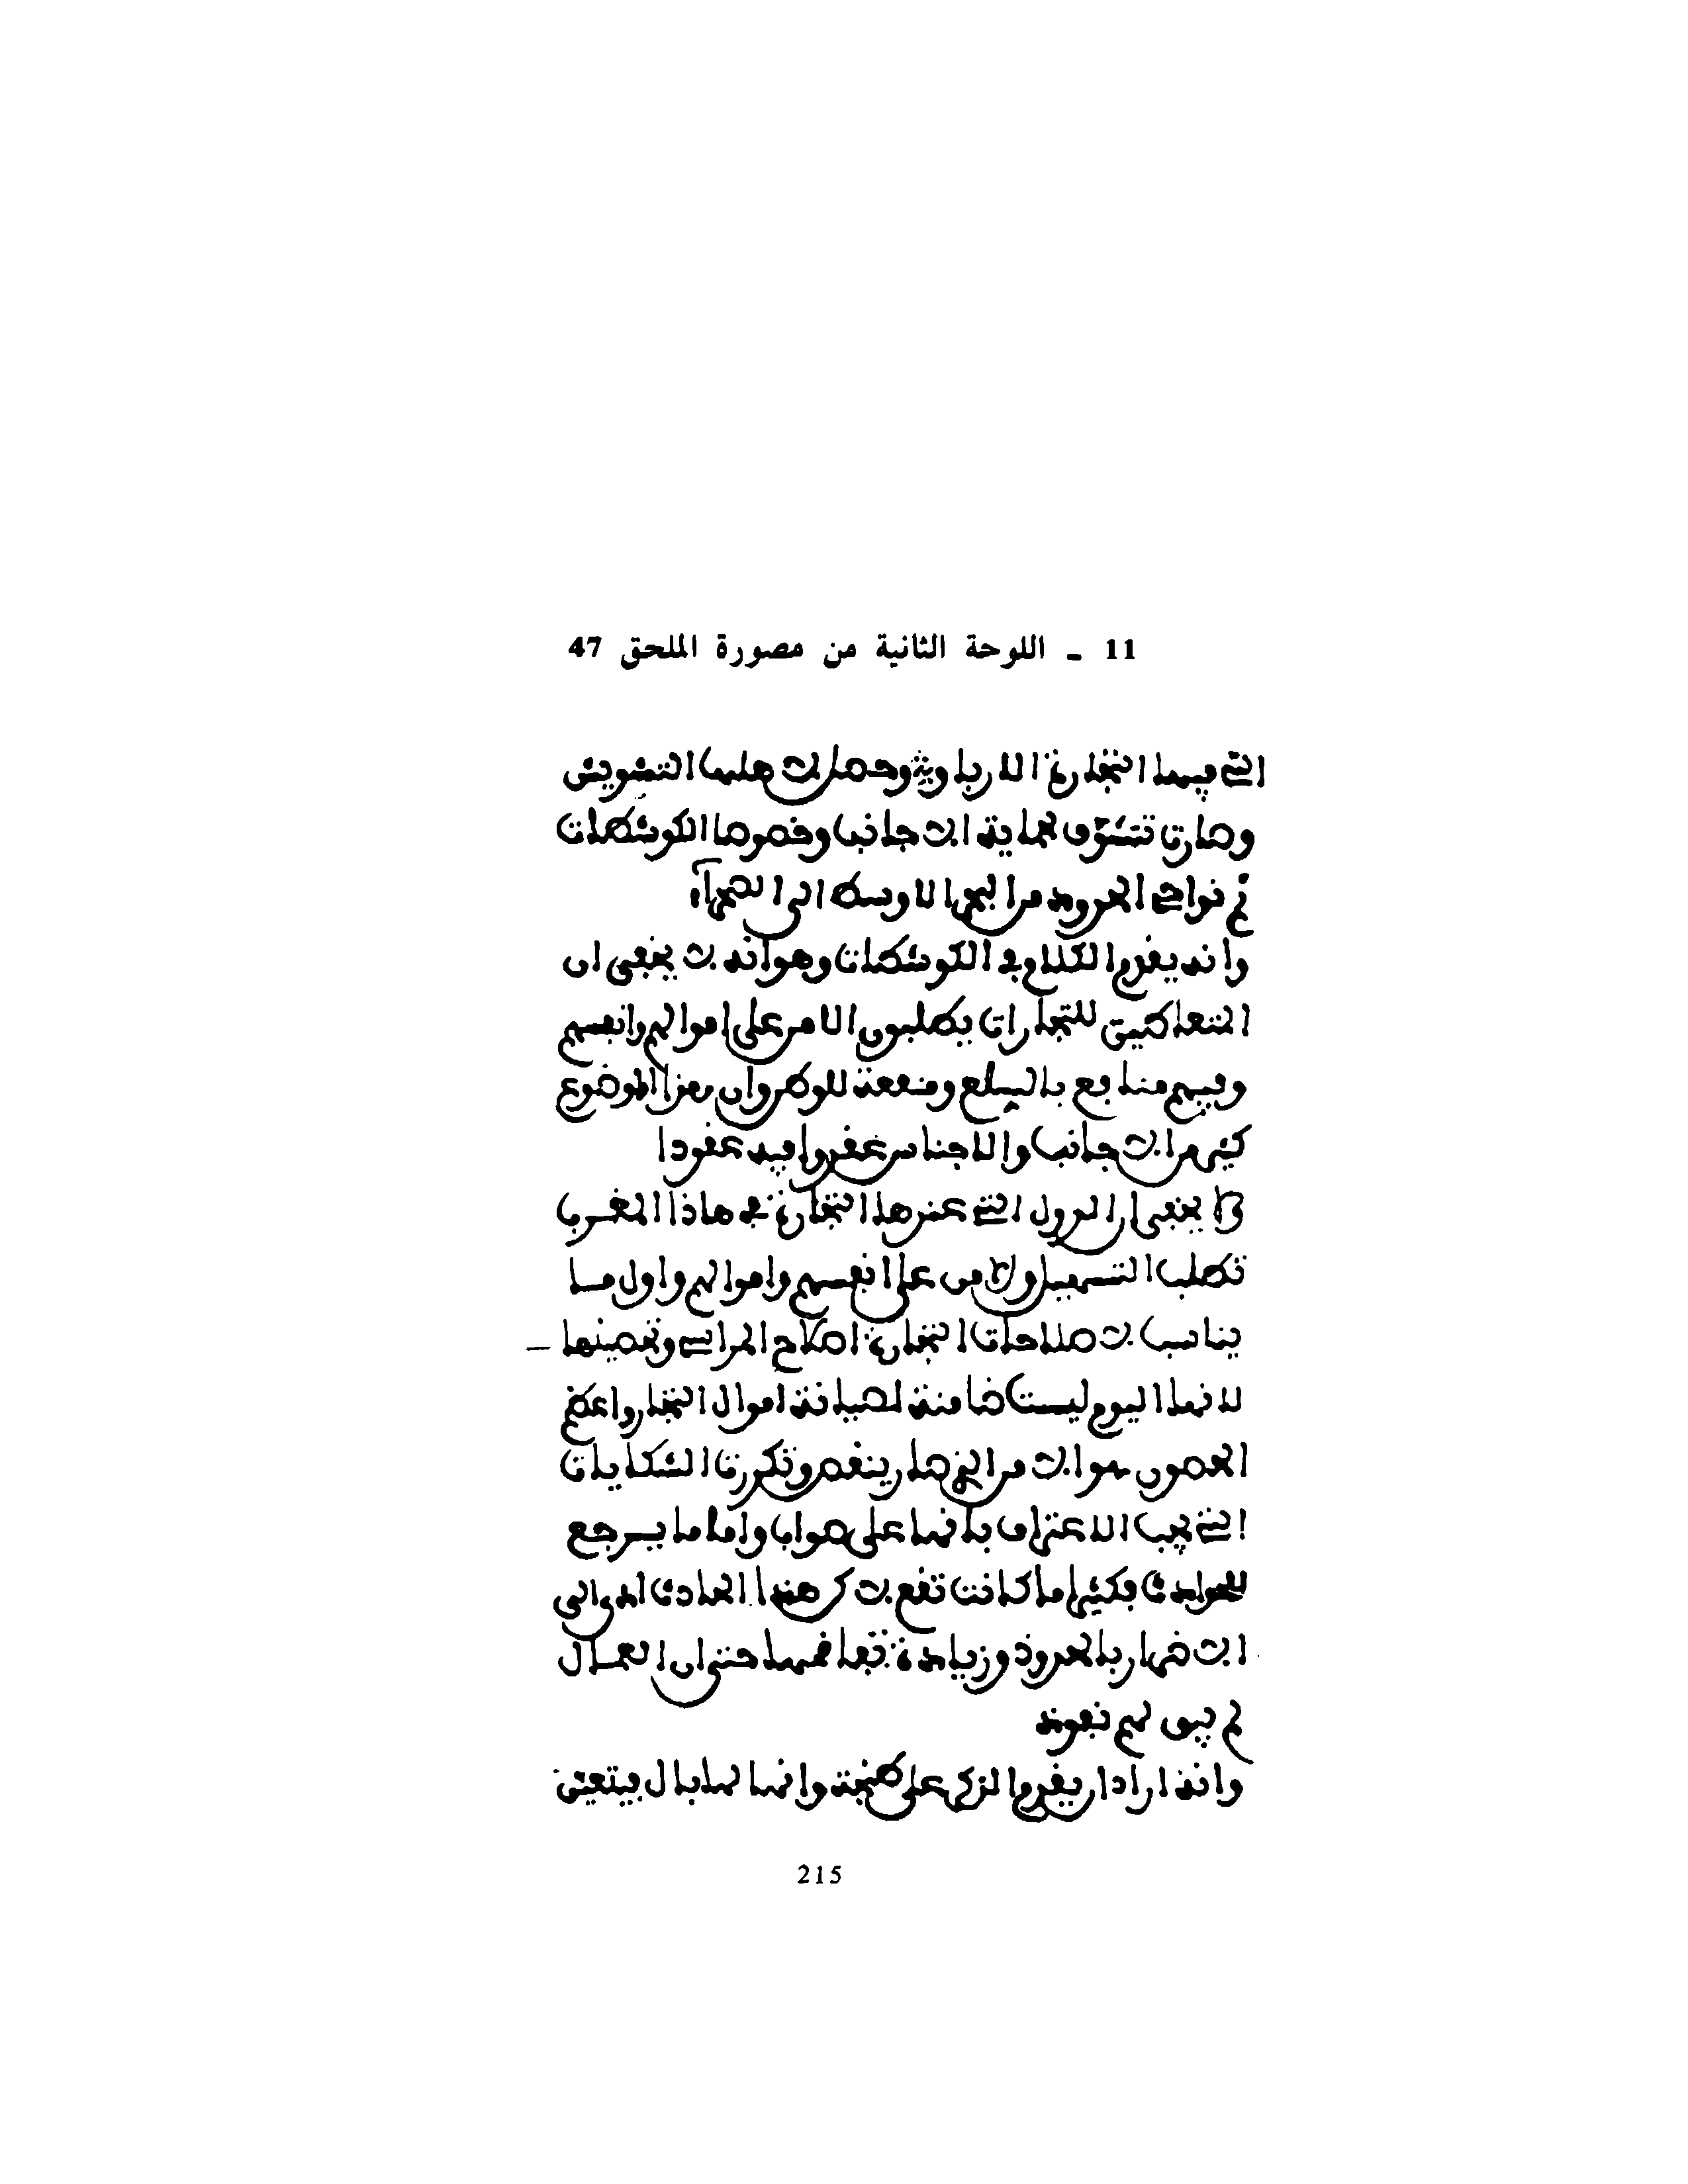 11 ـ اللوحة الثانية من مصورة الملحق 47
التي فيها التجارة الارباوية وحصل هليها التشويش
وصارت تتشوف لحماية الاجانب وخصوصا الكوشطات
في نواحي الحدود من البحر الاوسط الى الصحراء
وانه يقدم الكلام في الكوشطات وهو انه لا يخفى ان
المتعاطين للتجارات يطلبون الامن على اموالهم وانفسهم
وفيهم منافع بالسلع ومنفعة للوطن وان بهذا الموضوع
كثير من الاجانب والاجناس عقدوا فيه عقودا
ولا يخفى ان الدول التي عندها التجارة في هاذا المغرب
تطلب التسهيل والامن على انفسهم واموالهم واول ما
يناسب لاصلاحات التجارة اصلاح المراسي وتحصينها
لانها اليوم ليست ضامنة لصيانة اموال التجار واعظم
الحصون هو الامن الذي صار ينقص وتكررت الشكايات
التي يجب الاعتراف بانها على صواب واما ما يرجع
للحوادث فكثيرا ما كانت تقع لاكن هنا الحادث ادى الى
الاضرار بالحدود وزيادة تفاقمها حتى ان العمال
لم يبق لهم نفوذ
وانه اراد ان يقدم الذكر على طنجة وانها لها بال فيتعين
215